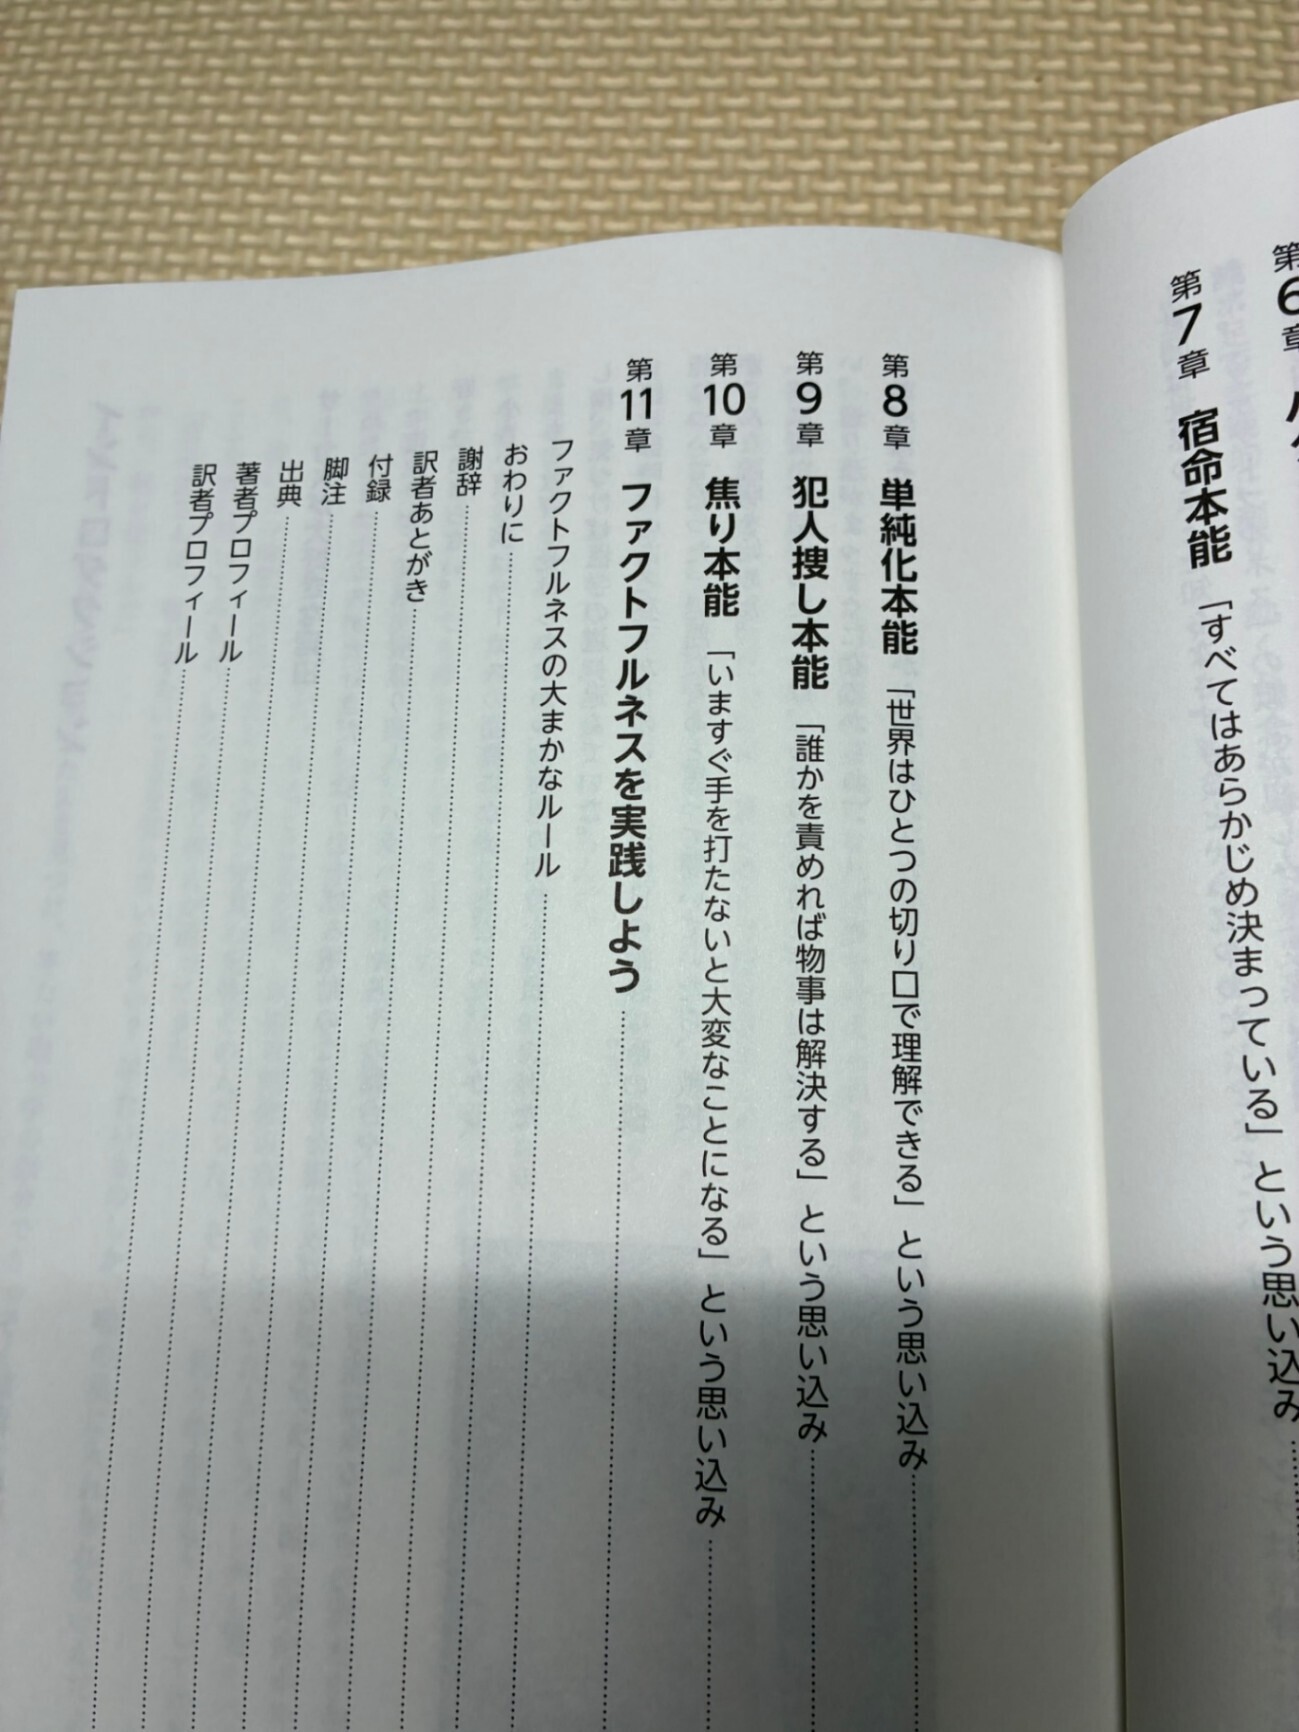 第6章
第7章 宿命本能 「すべてはあらかじめ決まっている」という思い込み
第8章 単純化本能 「世界はひとつの切り口で理解できる」という思い込み
第9章 犯人捜し本能 「誰かを責めれば物事は解決する」という思い込み
第10章 焦り本能 「いますぐ手を打たないと大変なことになる」という思い込み
第11章 ファクトフルネスを実践しよう
ファクトフルネスの大まかなルール
おわりに
謝辞
訳者あとがき
付録
脚注
出典
著者プロフィール
訳者プロフィール